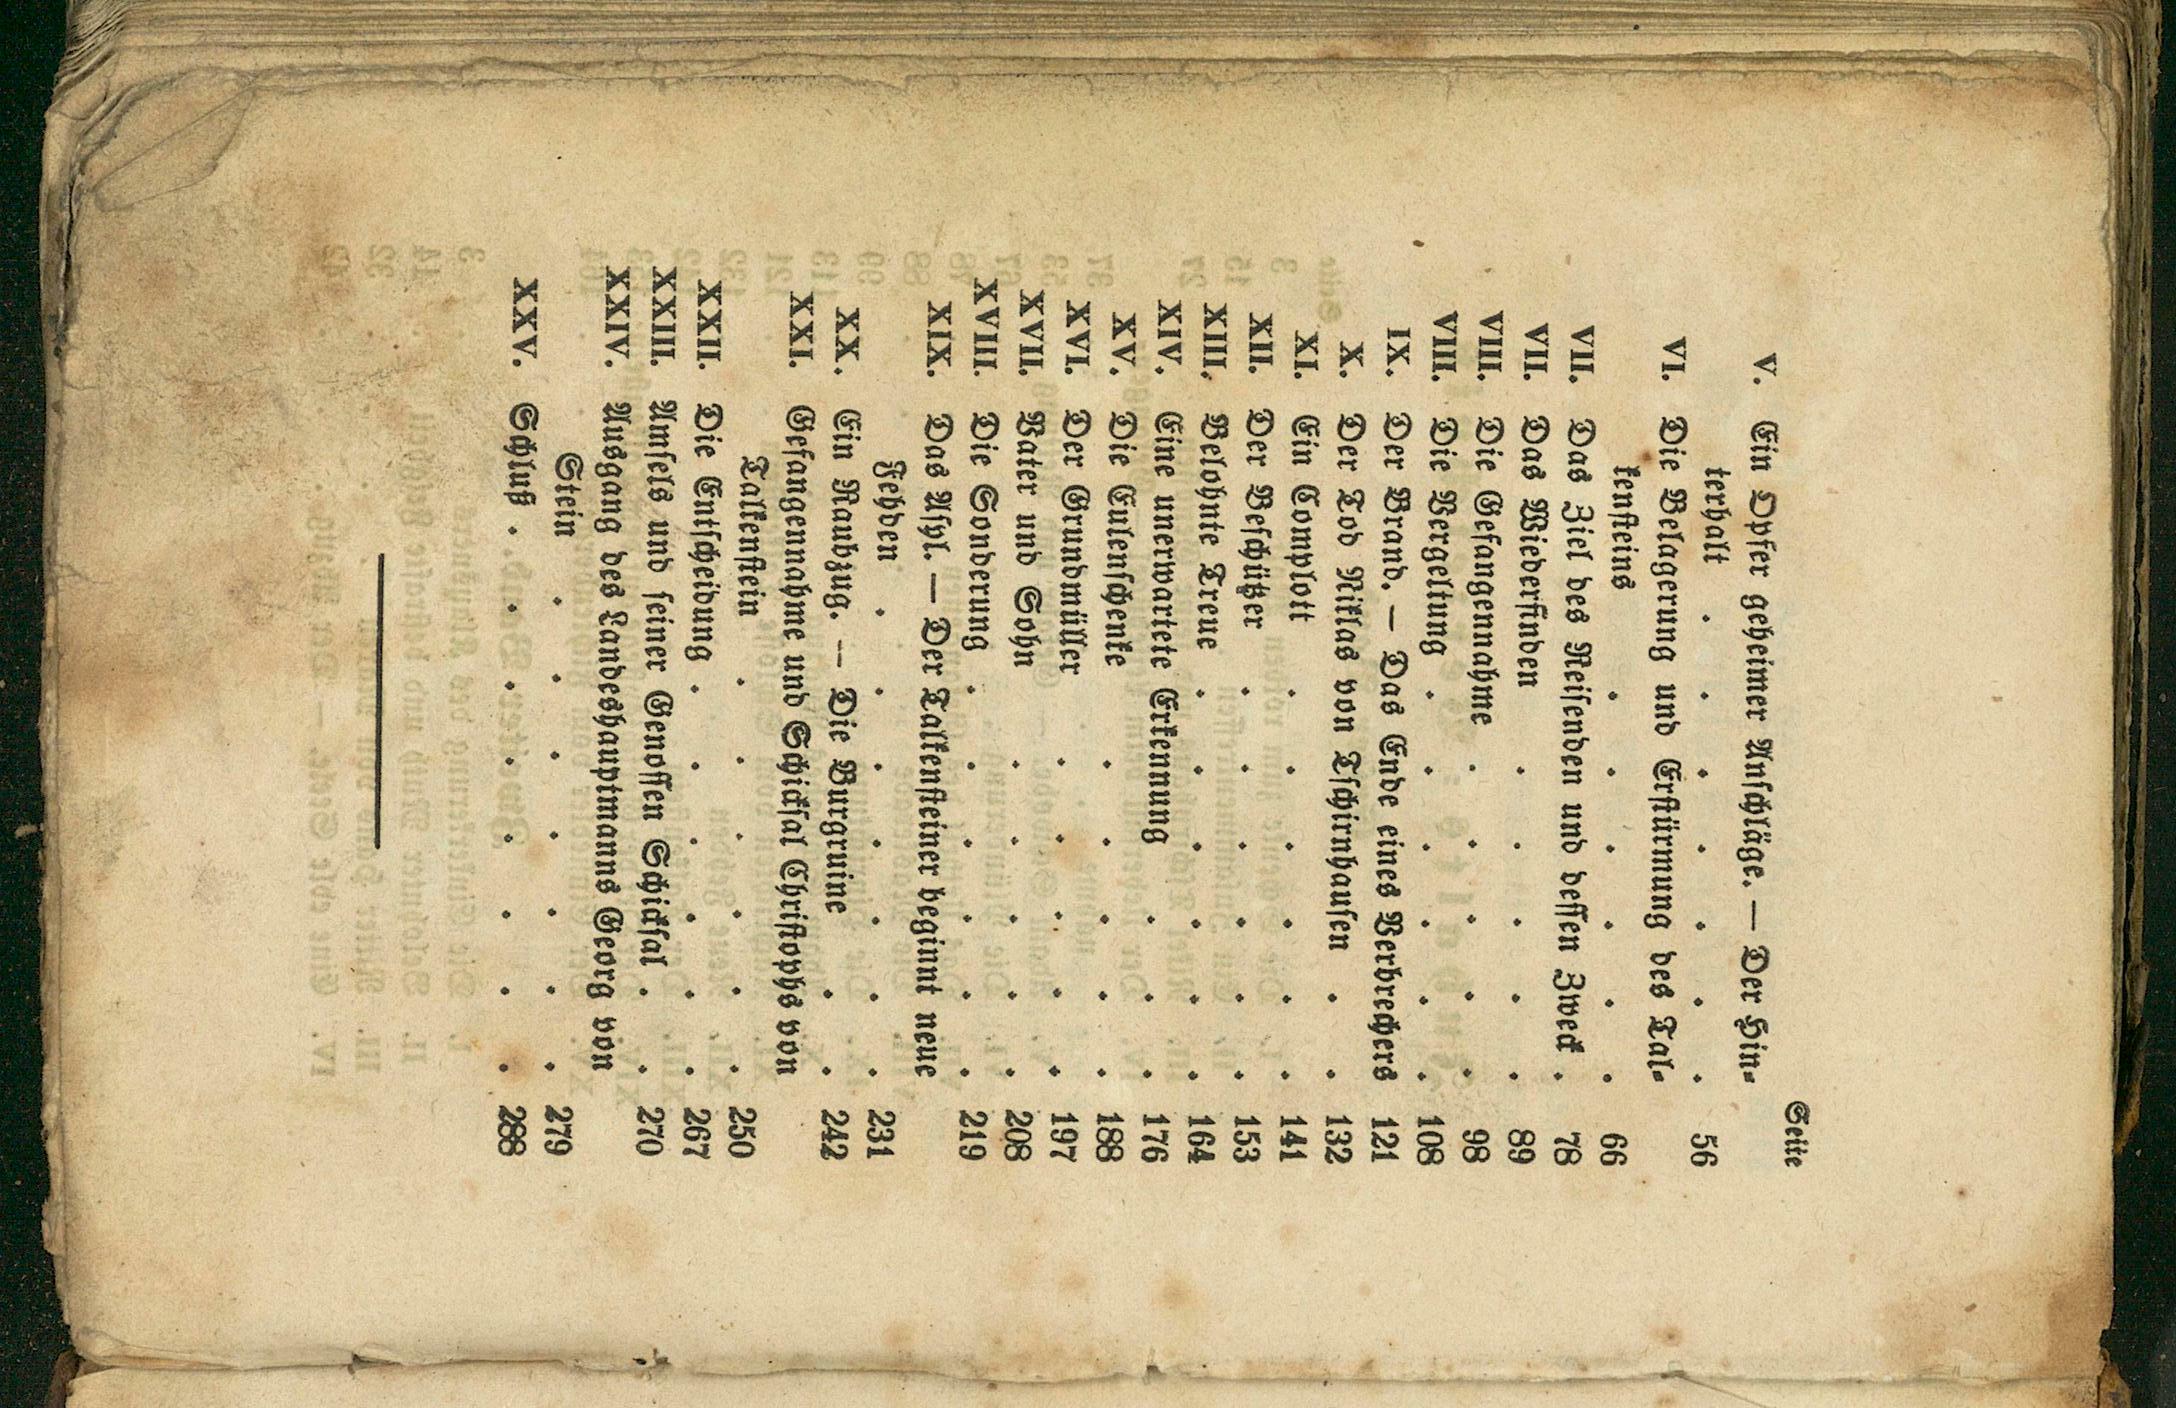 Seite
V. Ein Opfer geheimer Anschläge. — Der Hin-
terhalt . . . . . . 56
VI. Die Belagerung und Erstürmung des Tal-
kensteins . . . . . . 66
VII. Das Ziel des Reisenden und dessen Zweck . 78
VII. Das Wiederfinden . . . . . 89
VIII. Die Gefangennahme . . . . . 98
VIII. Die Vergeltung . . . . . . 108
IX. Der Brand. — Das Ende eines Verbrechers 121
X. Der Tod Niklas von Tschirnhausen . . 132
XI. Ein Complott . . . . . . 141
XII. Der Beschützer . . . . . . 153
XIII. Belohnte Treue . . . . . . 164
XIV. Eine unerwartete Erkennung . . . 176
XV. Die Eulenschenke . . . . . 188
XVI. Der Grundmüller . . . . . 197
XVII. Vater und Sohn . . . . . 208
XVIII. Die Sonderung . . . . . . 219
XIX. Das Asyl. — Der Talkensteiner beginnt neue
Fehden . . . . . . . 231
XX. Ein Raubzug. — Die Burgruine . . 242
XXI. Gefangennahme und Schicksal Christophs von
Talkenstein . . . . . . 250
XXII. Die Entscheidung . . . . . . 267
XXIII. Amsels und seiner Genossen Schicksal . . 270
XXIV. Ausgang des Landeshauptmanns Georg von
Stein . . . . . . . 279
XXV. Schluß . . . . . . . . 288